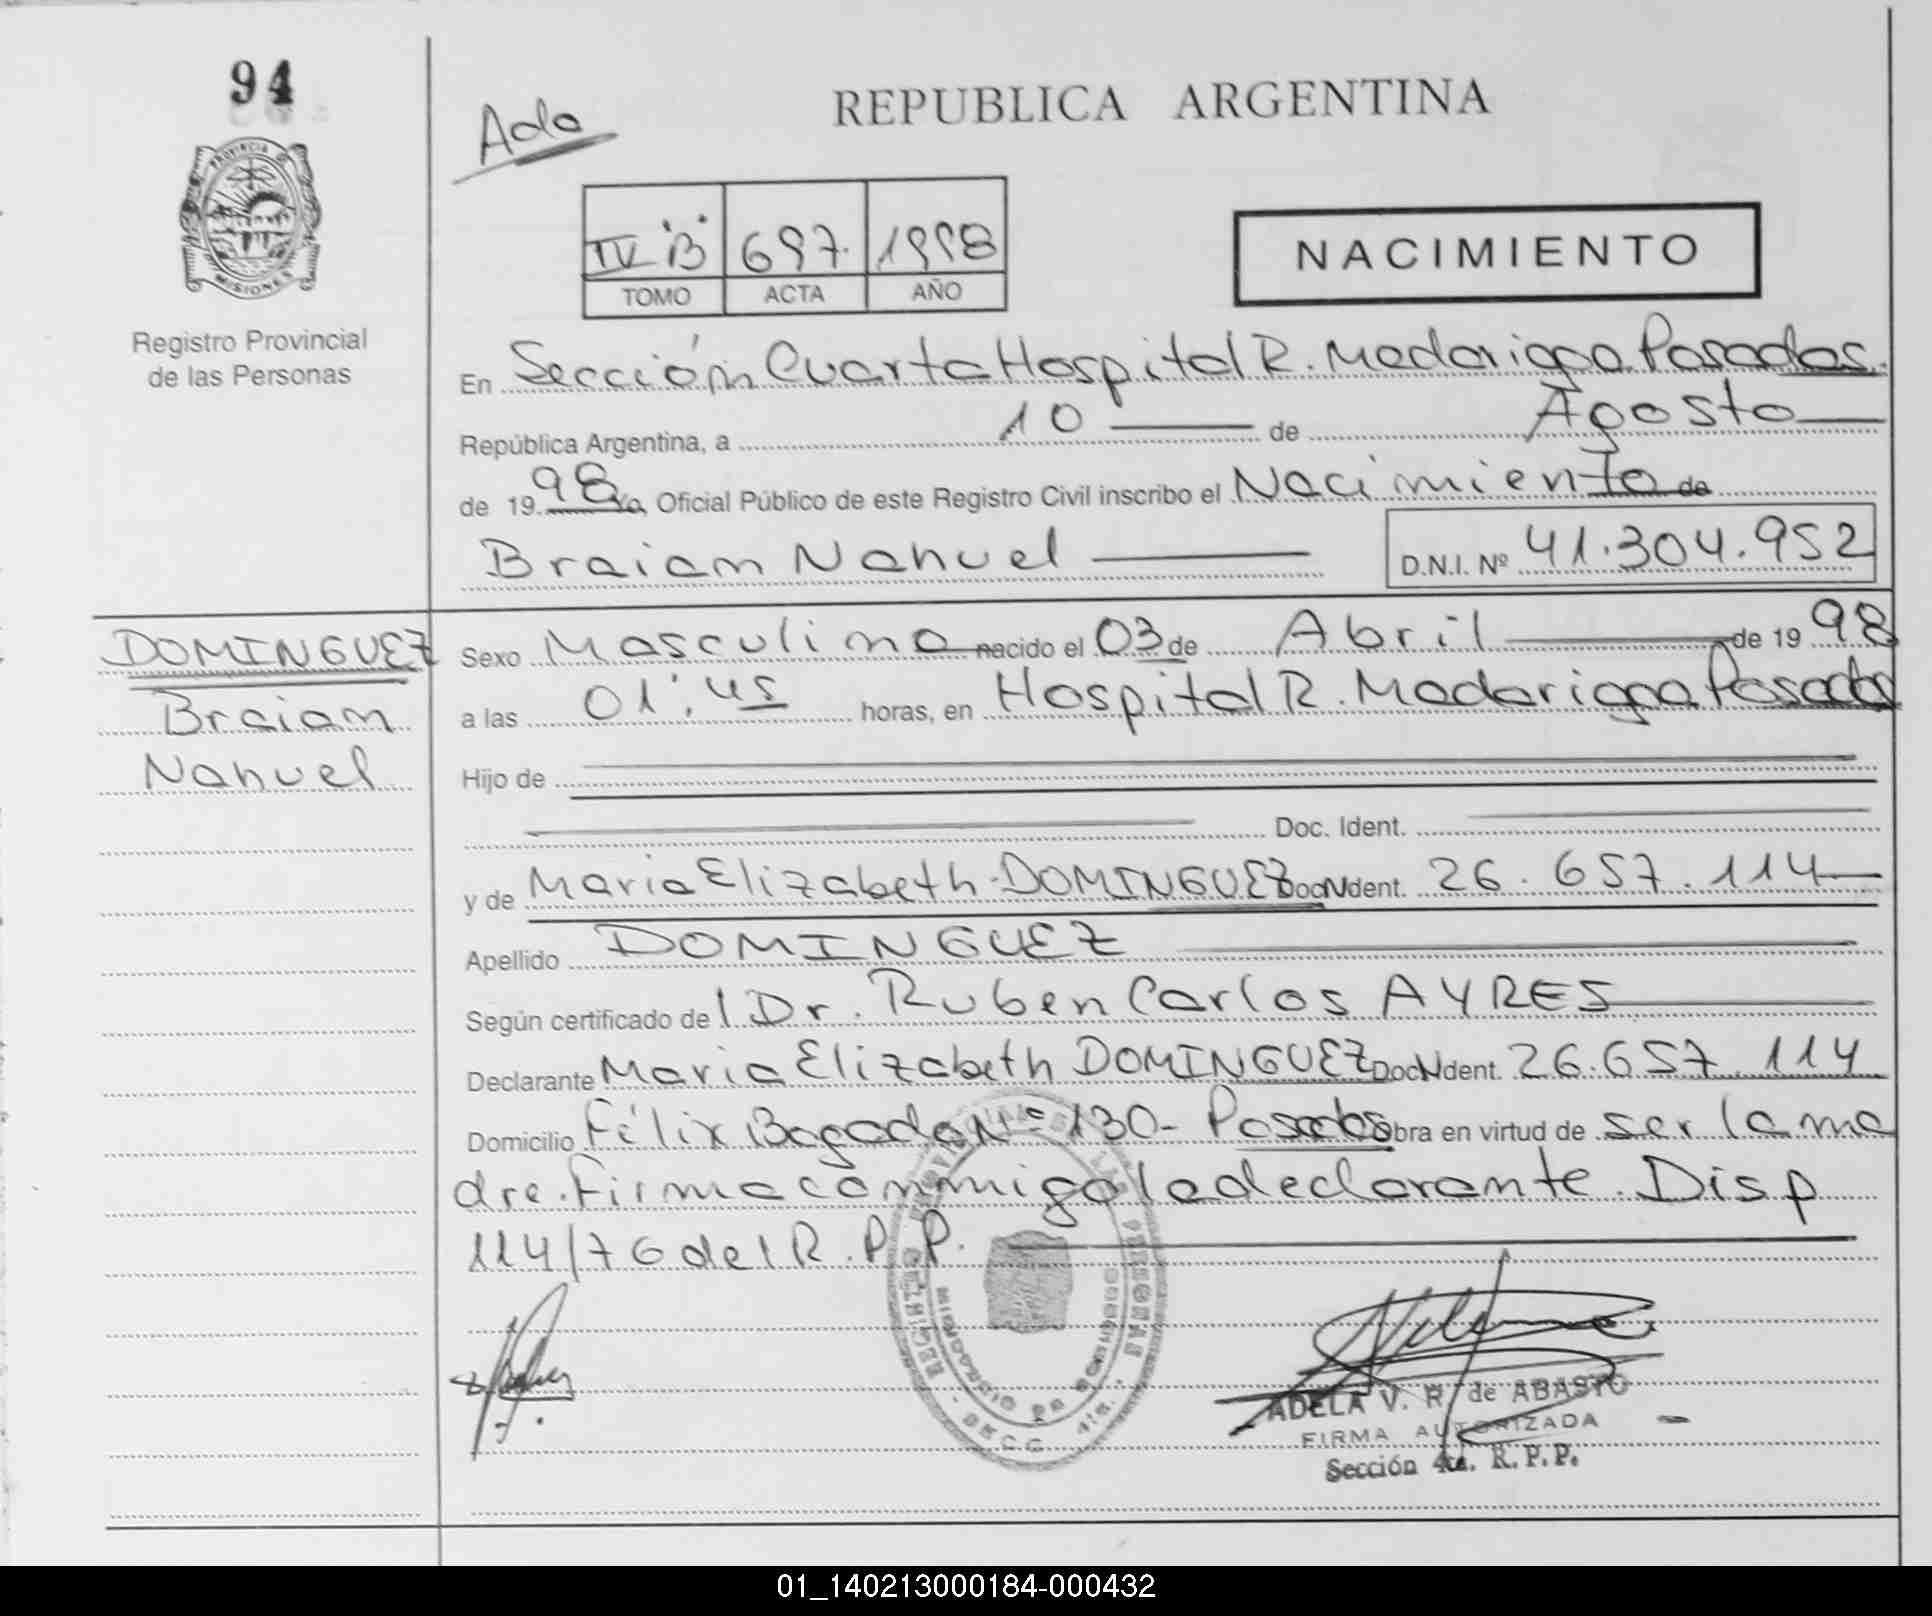 94
Ada
REPUBLICA ARGENTINA
PROVINCIA DE
MISIONES
Registro Provincial
de las Personas
IV "B" 697. 1998
TOMO ACTA AÑO
NACIMIENTO
En Sección Cuarta Hospital R. Madariaga Posadas.
República Argentina, a 10 de Agosto
de 1998 Yo, Oficial Público de este Registro Civil inscribo el Nacimiento de
Braian Nahuel D.N.I. Nº 41.304.952
DOMINGUEZ
Braian
Nahuel
Sexo Masculino nacido el 03 de Abril de 1998
a las 01:45 horas, en Hospital R. Madariaga Posadas
Hijo de
Doc. Ident.
y de Maria Elizabeth DOMINGUEZ DocNdent. 26.657.114
Apellido DOMINGUEZ
Según certificado del Dr. Ruben Carlos AYRES
Declarante Maria Elizabeth DOMINGUEZ DocNdent. 26.657.114
Domicilio Félix Bogado Nº 130- Posadas Obra en virtud de ser la ma
dre. Firma conmigo la declarante. Disp
114/76 del R.P.P.
ADELA V. R. de ABASTO
FIRMA AUTORIZADA
Sección 4ta. R.P.P.
01_140213000184-000432